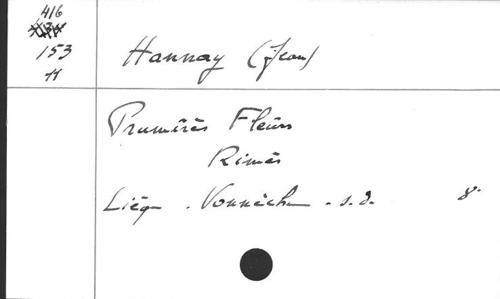 416
153
11
Hannay (Jean)
Prumîrès Fleûrs
Rimès
Liég . Vonnêche . s.d. 8°